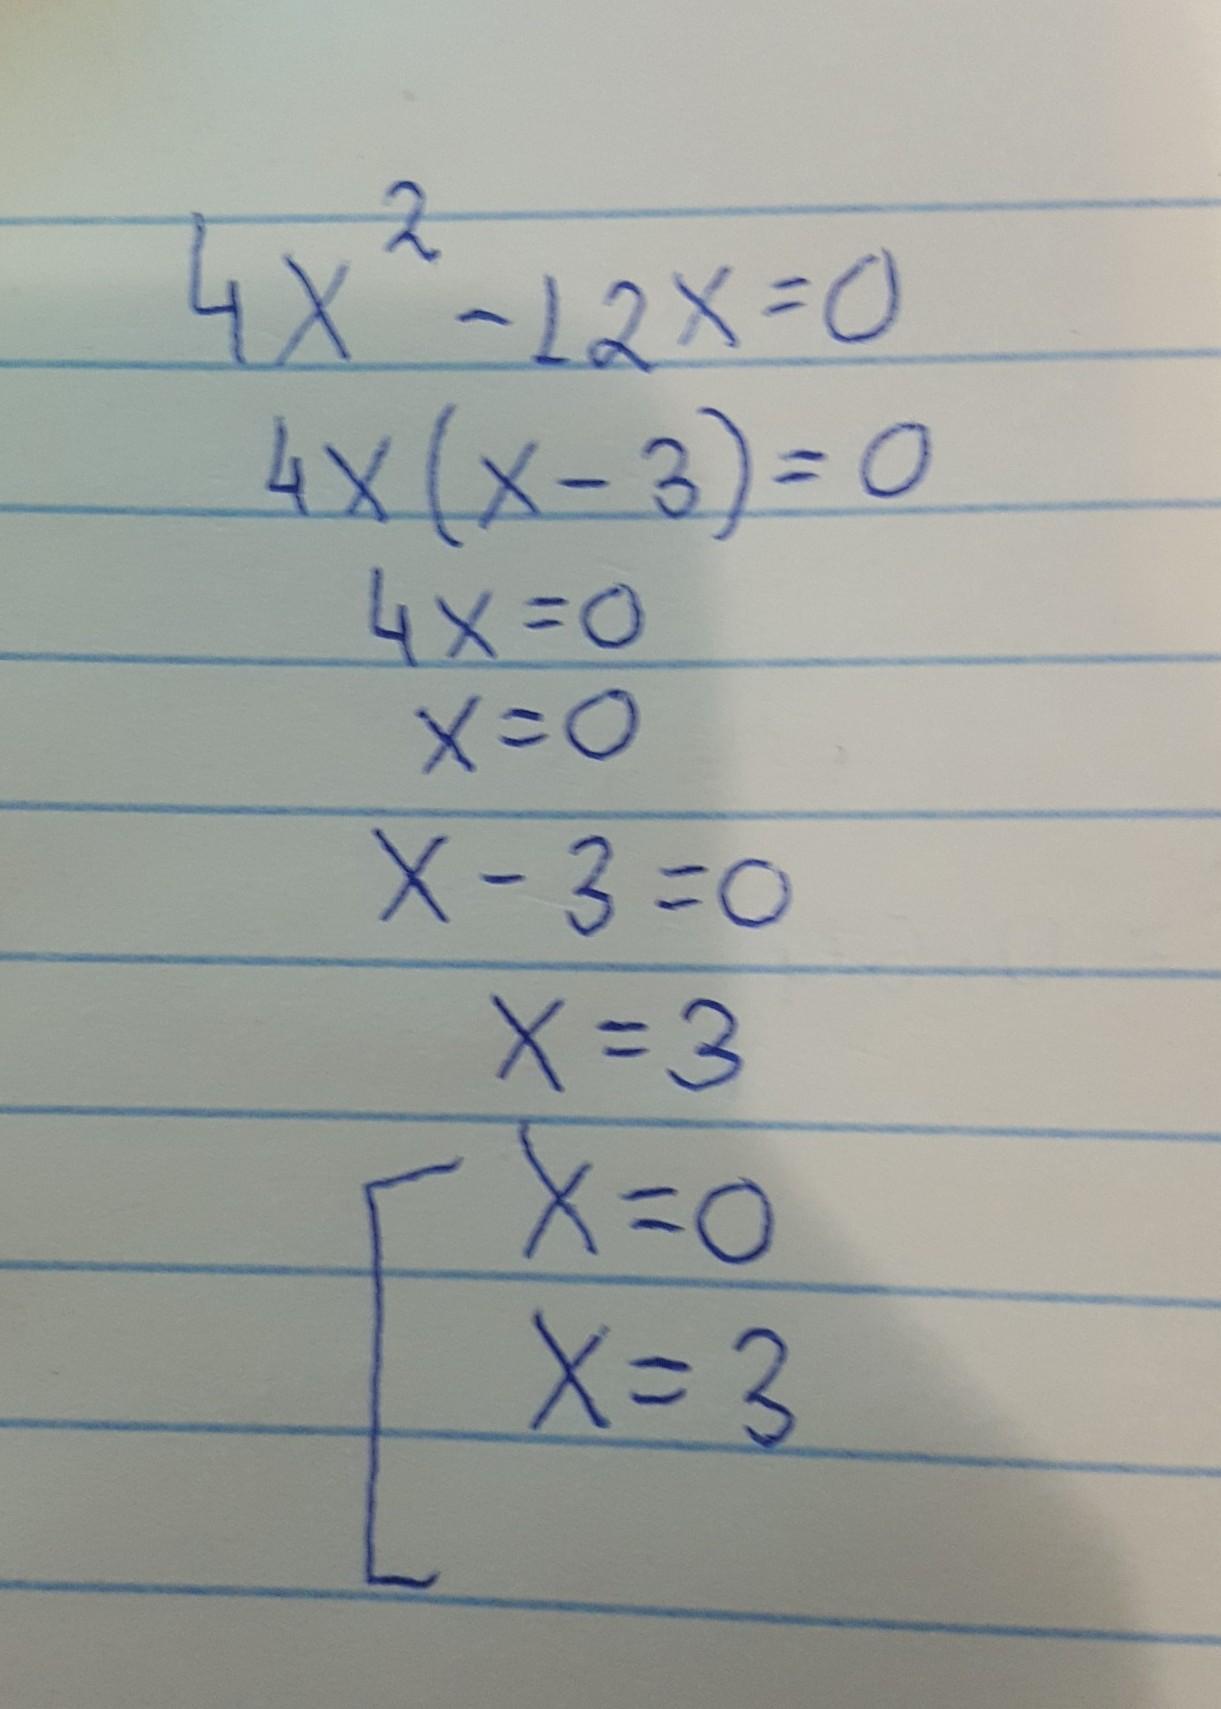 4x² - 12x = 0
4x(x - 3) = 0
4x = 0
x = 0
x - 3 = 0
x = 3
[ x = 0
x = 3